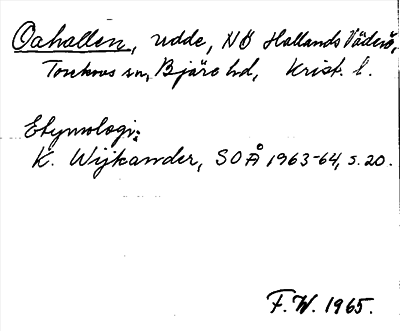 Oahallen, udde, NÖ Hallands Väderö,
Torekovs sn, Bjäre hd, Krist. l.
Etymologi:
K. Wijkander, SOÅ 1963-64, s. 20.
F. W. 1965.